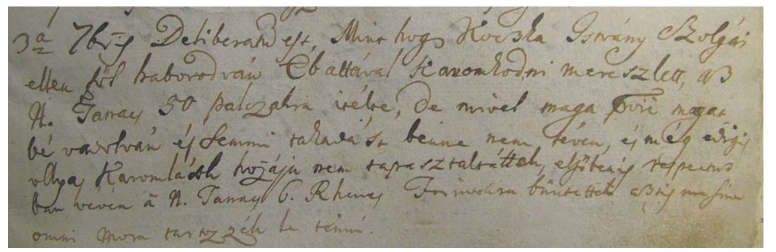 3ª 7bris Deliberatum est, Mint hogy Kocska Istvány Szolgái
ellen föl haborodván Ebattával Karomkodni mereszlett, az
N. Tanacs 50 palczakra itélte, de mivel maga
bé vadolván és Semmi tagadást benne nem téven, és még eddig
ollyas Karomlások hozzája nem tapasztaltattak, elsőben respectus
ban veven a N. Tanacs 6. Rhenes Forintokra büntettet
omni mora tartozzék le tenni.